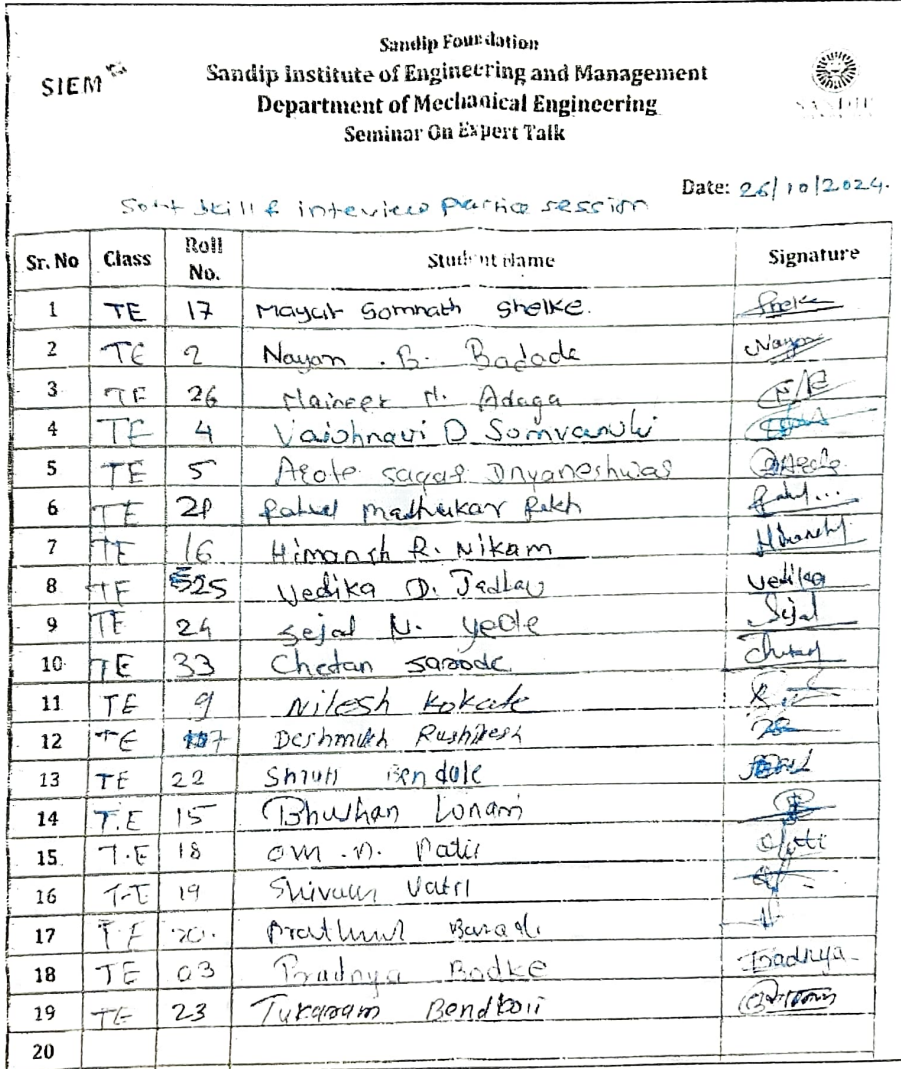 Sandip Foundation
SIEM
Sandip Institute of Engineering and Management
Department of Mechanical Engineering
Seminar On Expert Talk
SANDIP
Date: 26/10/2024.
Soft skill & interview practice session
Sr. No Class Roll No. Student Name Signature
1 TE 17 Mayur Somnath Shelke. Shelke
2 TE 2 Nayan .B. Badade Nayan
3 TE 26 N. Adaga
4 TE 4 Vaishnavi D Somvanshi
5 TE 5 Arote sagar Dnyaneshwar DArote
6 TE Madhukar
7 TE 16 Himansh R. Nikam Himansh
8 TE 25 Vedika D. Jadhav Vedika
9 TE 24 Sejal N. Yeole Sejal
10 TE 33 Chetan Sarode Chetan
11 TE 9 Nilesh Kokate
12 TE Deshmukh Rushikesh
13 TE 22 Shruti Bendale
14 T.E 15 Bhushan Lonari
15 T.E 18 Om .N. Patil
16 T.E 19 Shivam
17 T.E 20.
18 TE 03 Pradnya Bodke Pradnya
19 TE 23 Tukaram Bendkoli
20